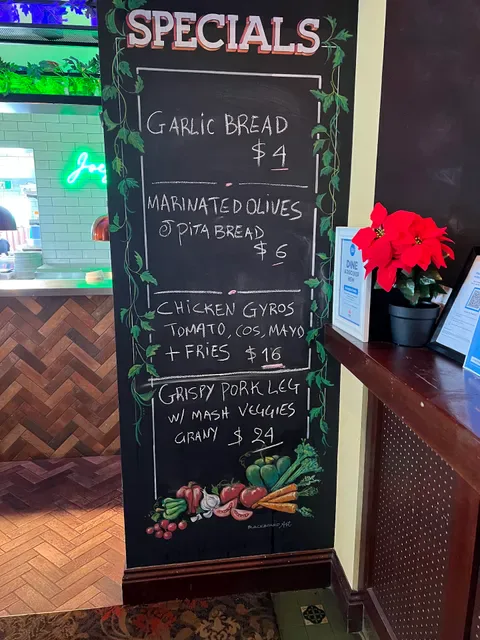 SPECIALS
GARLIC BREAD
$4
MARINATED OLIVES
@ PITA BREAD
$6
CHICKEN GYROS
TOMATO, COS, MAYO
+ FRIES $16
GRISPY PORK LEG
W/ MASH VEGGIES
GRAVY $24
DINE